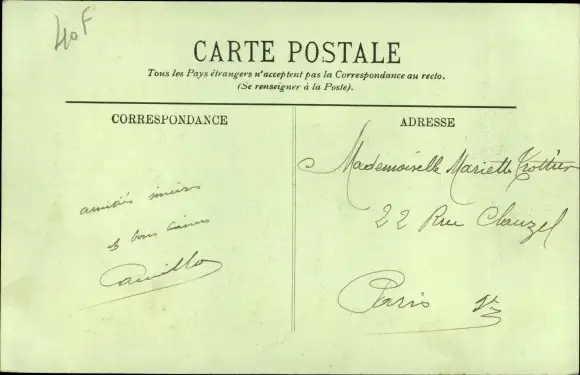 40F
CARTE POSTALE
Tous les Pays étrangers n'acceptent pas la Correspondance au recto.
(Se renseigner à la Poste).
CORRESPONDANCE
ADRESSE
amitiés
et bons
Mademoiselle Mariette Trottier
22 Rue Clauzel
Paris